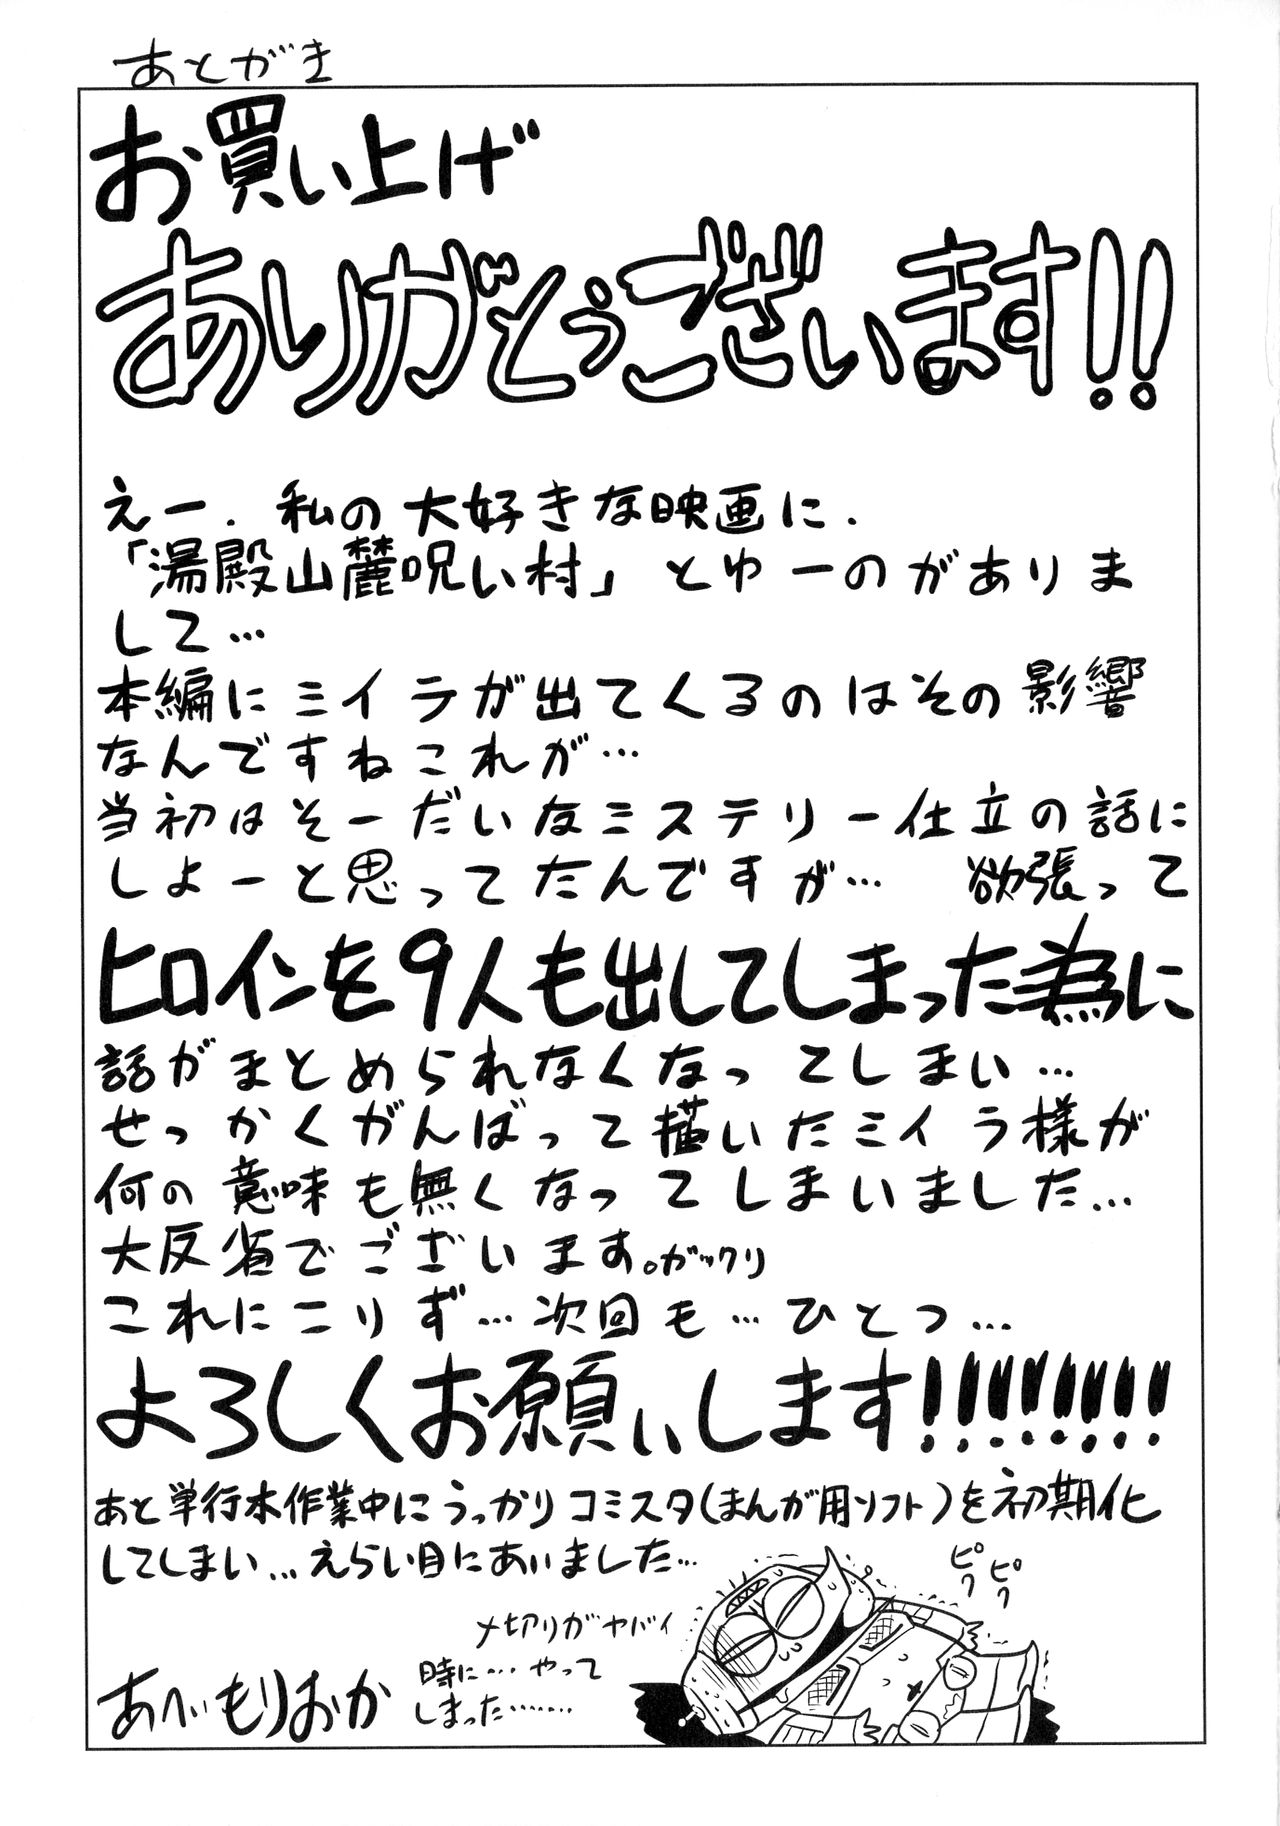 あとがき
お買い上げ
ありがとうございます!!
えー．私の大好きな映画に．
「湯殿山麓呪い村」とゆーのがありま
して…
本編にミイラが出てくるのはその影響
なんですねこれが…
当初はそーだいなミステリー仕立の話に
しよーと思ってたんですが… 欲張って
ヒロインを9人も出してしまった為に
話がまとめられなくなってしまい…
せっかくがんばって描いたミイラ様が
何の意味も無くなってしまいました…
大反省でございます。ガックリ
これにこりず…次回も…ひとつ…
よろしくお願いします!!!!!!!!
あと単行本作業中にうっかりコミスタ(まんが用ソフト)を初期化
してしまい…えらい目にあいました…
ピク
ピク
〆切りがヤバイ
時に…やって
しまった………
あへいもりおか